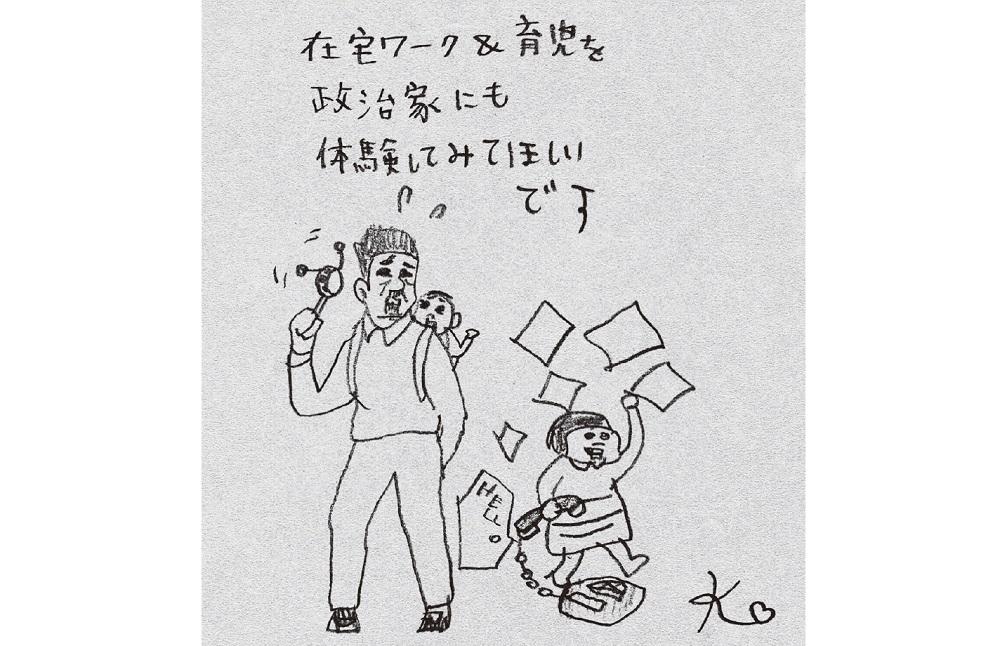 在宅ワーク&育児を
政治家にも
体験してみてほしい
です
HELL
K